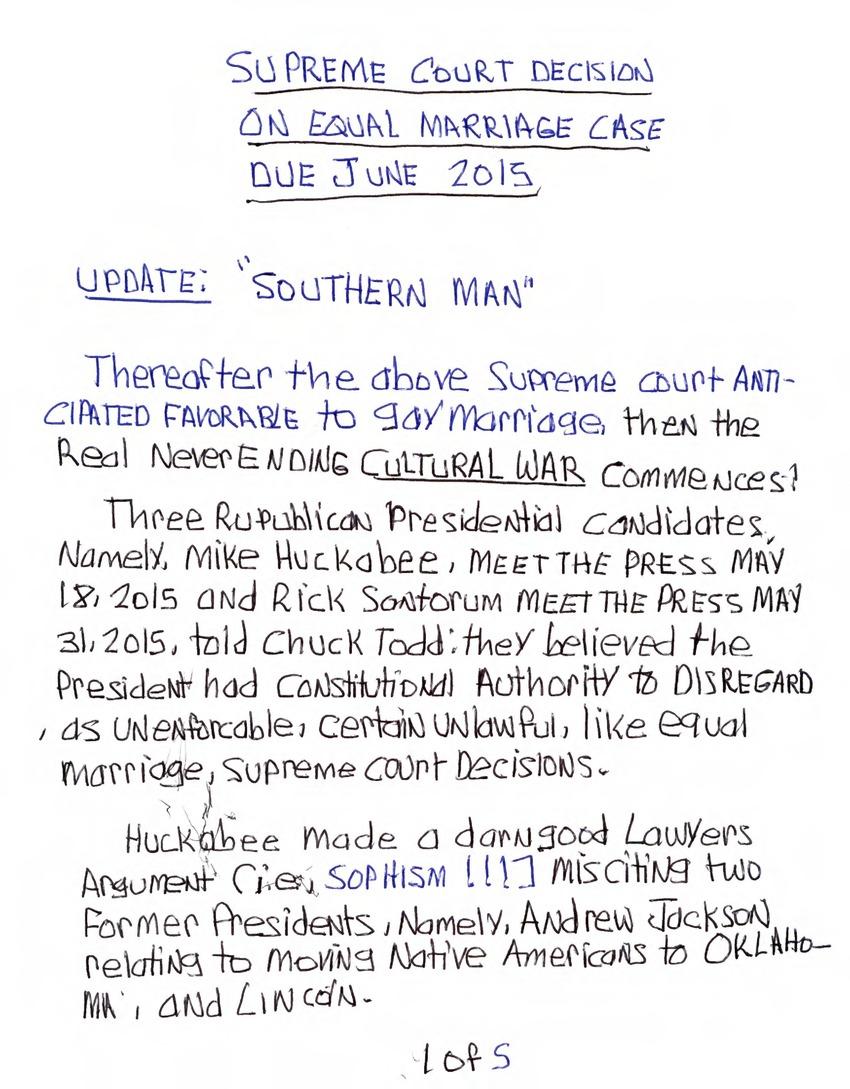 SUPREME COURT DECISION
ON EQUAL MARRIAGE CASE
DUE JUNE 2015
UPDATE: "SOUTHERN MAN"
Thereafter the above Supreme court ANTI-
CIPATED FAVORABLE to gay marriage, then the
Real NeverENDING CULTURAL WAR Commences?
Three Rupublican Presidential candidates,
Namely, Mike Huckabee, MEET THE PRESS MAY
18, 2015 and Rick Santorum MEET THE PRESS MAY
31, 2015, told Chuck Todd: they believed the
President had Constitutional Authority to DISREGARD
, as UNENforcable, certain UNlawful, like equal
marriage, Supreme Court Decisions.
Huckabee made a darngood Lawyers
Argument (i.e., SOPHISM !!!] misciting two
Former Presidents, Namely, Andrew Jackson,
relating to moving Native Americans to OKLAHO-
MA, and LINCOLN.
1 of 5